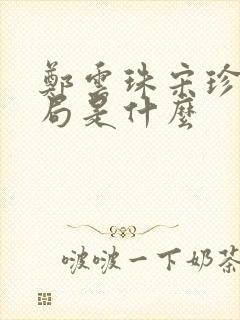 鄭雲珠宋珍
局是什麼
啵啵一下奶茶